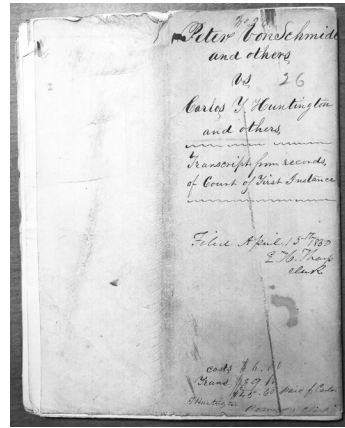 Peter Von Schmidt
and others
vs 26
Carlos Y. Huntington
and others
Transcript from records
of Court of First Instance
Filed April 15th 1850
E. H. Tharp
clerk
costs $6.00
Trans
Huntington